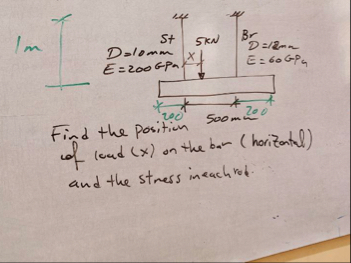 1m
St
5kN
Br
D=10mm
E=200GPa
x
D=12mm
E=60GPa
200
500mm
200
Find the position
of load (x) on the bar (horizontal)
and the stress in each rod.